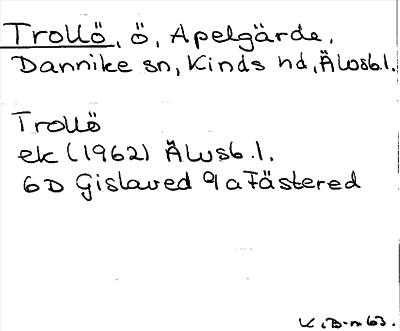 Trollö, ö, Apelgärde,
Dannike sn, Kinds hd, Älvsb.l.
Trollö
ek (1962) Älvsb.l.
6D Gislaved 9a Fästered
K.B-m 63.